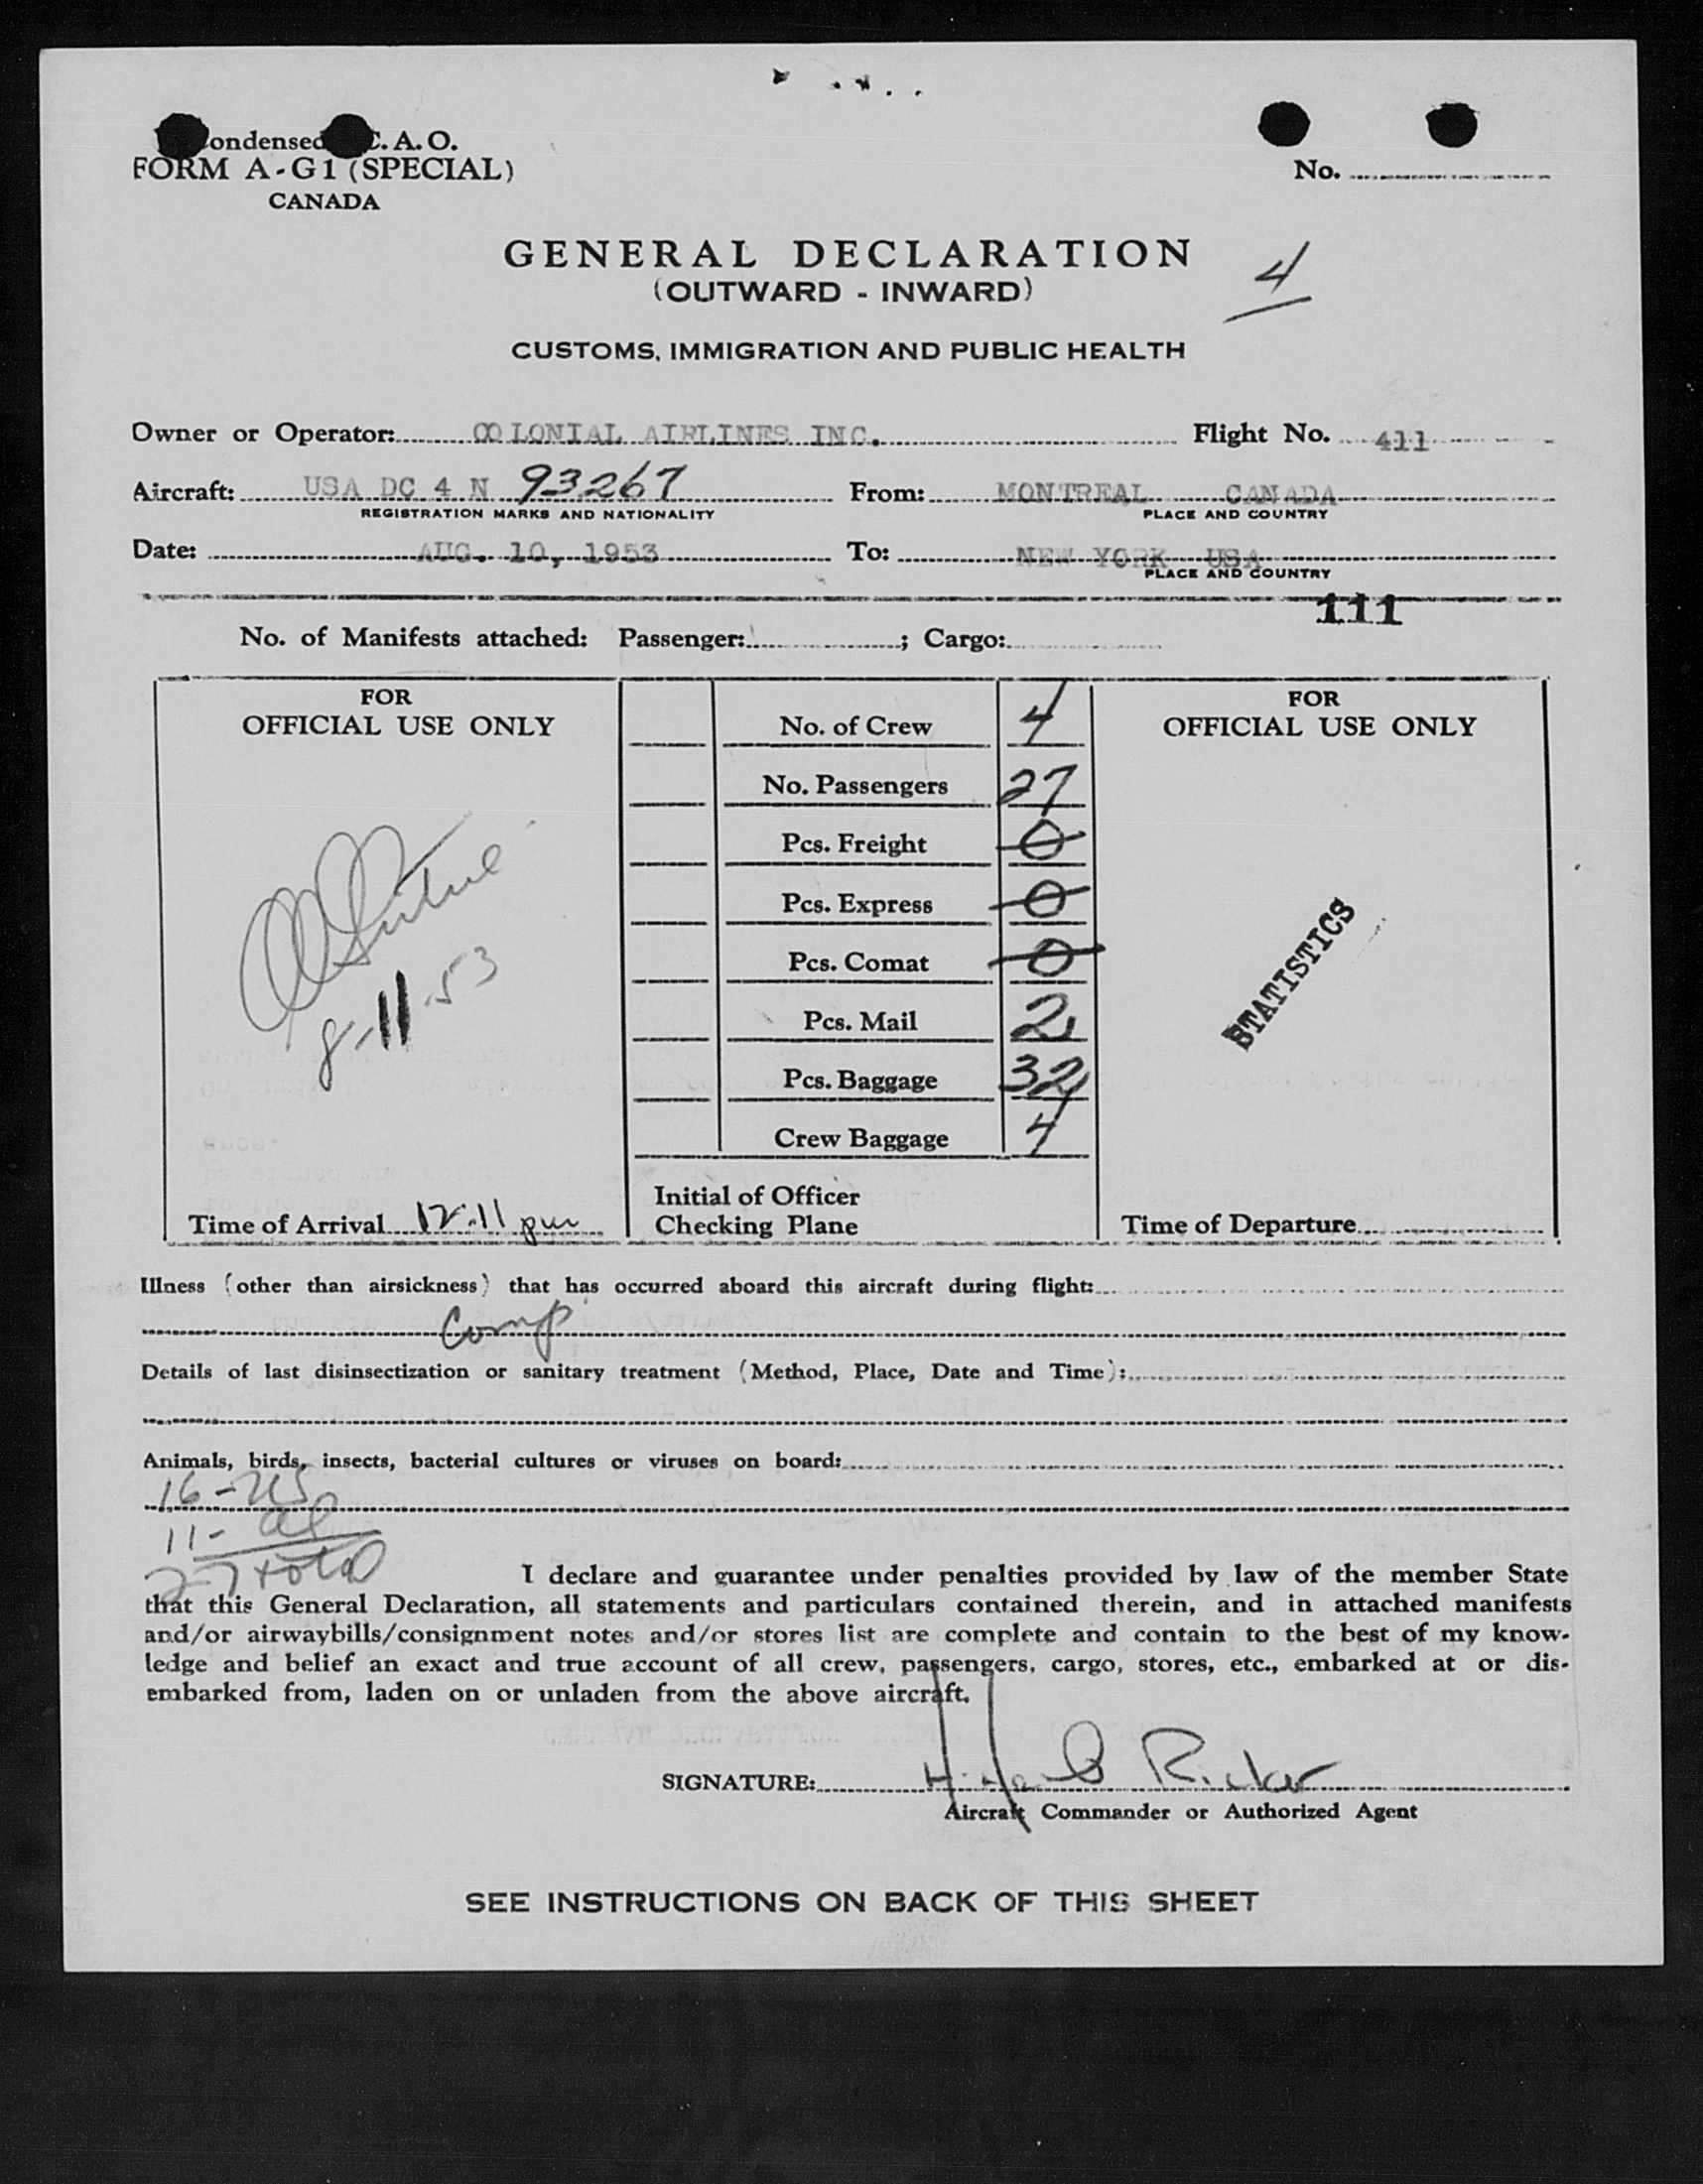 ondensed C. A. O.
FORM A-G1 (SPECIAL)
CANADA
No.
GENERAL DECLARATION
(OUTWARD - INWARD)
4
CUSTOMS, IMMIGRATION AND PUBLIC HEALTH
Owner or Operator: COLONIAL AIRLINES INC. Flight No. 411
Aircraft: USA DC 4 N 93267 From: MONTREAL CANADA
REGISTRATION MARKS AND NATIONALITY PLACE AND COUNTRY
Date: AUG. 10, 1953 To: NEW YORK USA
PLACE AND COUNTRY
111
No. of Manifests attached: Passenger: ; Cargo:
FOR
OFFICIAL USE ONLY
8-11-53
Time of Arrival 12.11 pm
No. of Crew 4
No. Passengers 27
Pcs. Freight 0
Pcs. Express 0
Pcs. Comat 0
Pcs. Mail 2
Pcs. Baggage 32
Crew Baggage 4
Initial of Officer
Checking Plane
FOR
OFFICIAL USE ONLY
STATISTICS
Time of Departure
Illness (other than airsickness) that has occurred aboard this aircraft during flight:
Comp
Details of last disinsectization or sanitary treatment (Method, Place, Date and Time):
Animals, birds, insects, bacterial cultures or viruses on board:
16-US
11- al
27 total
I declare and guarantee under penalties provided by law of the member State
that this General Declaration, all statements and particulars contained therein, and in attached manifests
and/or airwaybills/consignment notes and/or stores list are complete and contain to the best of my know-
ledge and belief an exact and true account of all crew, passengers, cargo, stores, etc., embarked at or dis-
embarked from, laden on or unladen from the above aircraft.
SIGNATURE:
Aircraft Commander or Authorized Agent
SEE INSTRUCTIONS ON BACK OF THIS SHEET